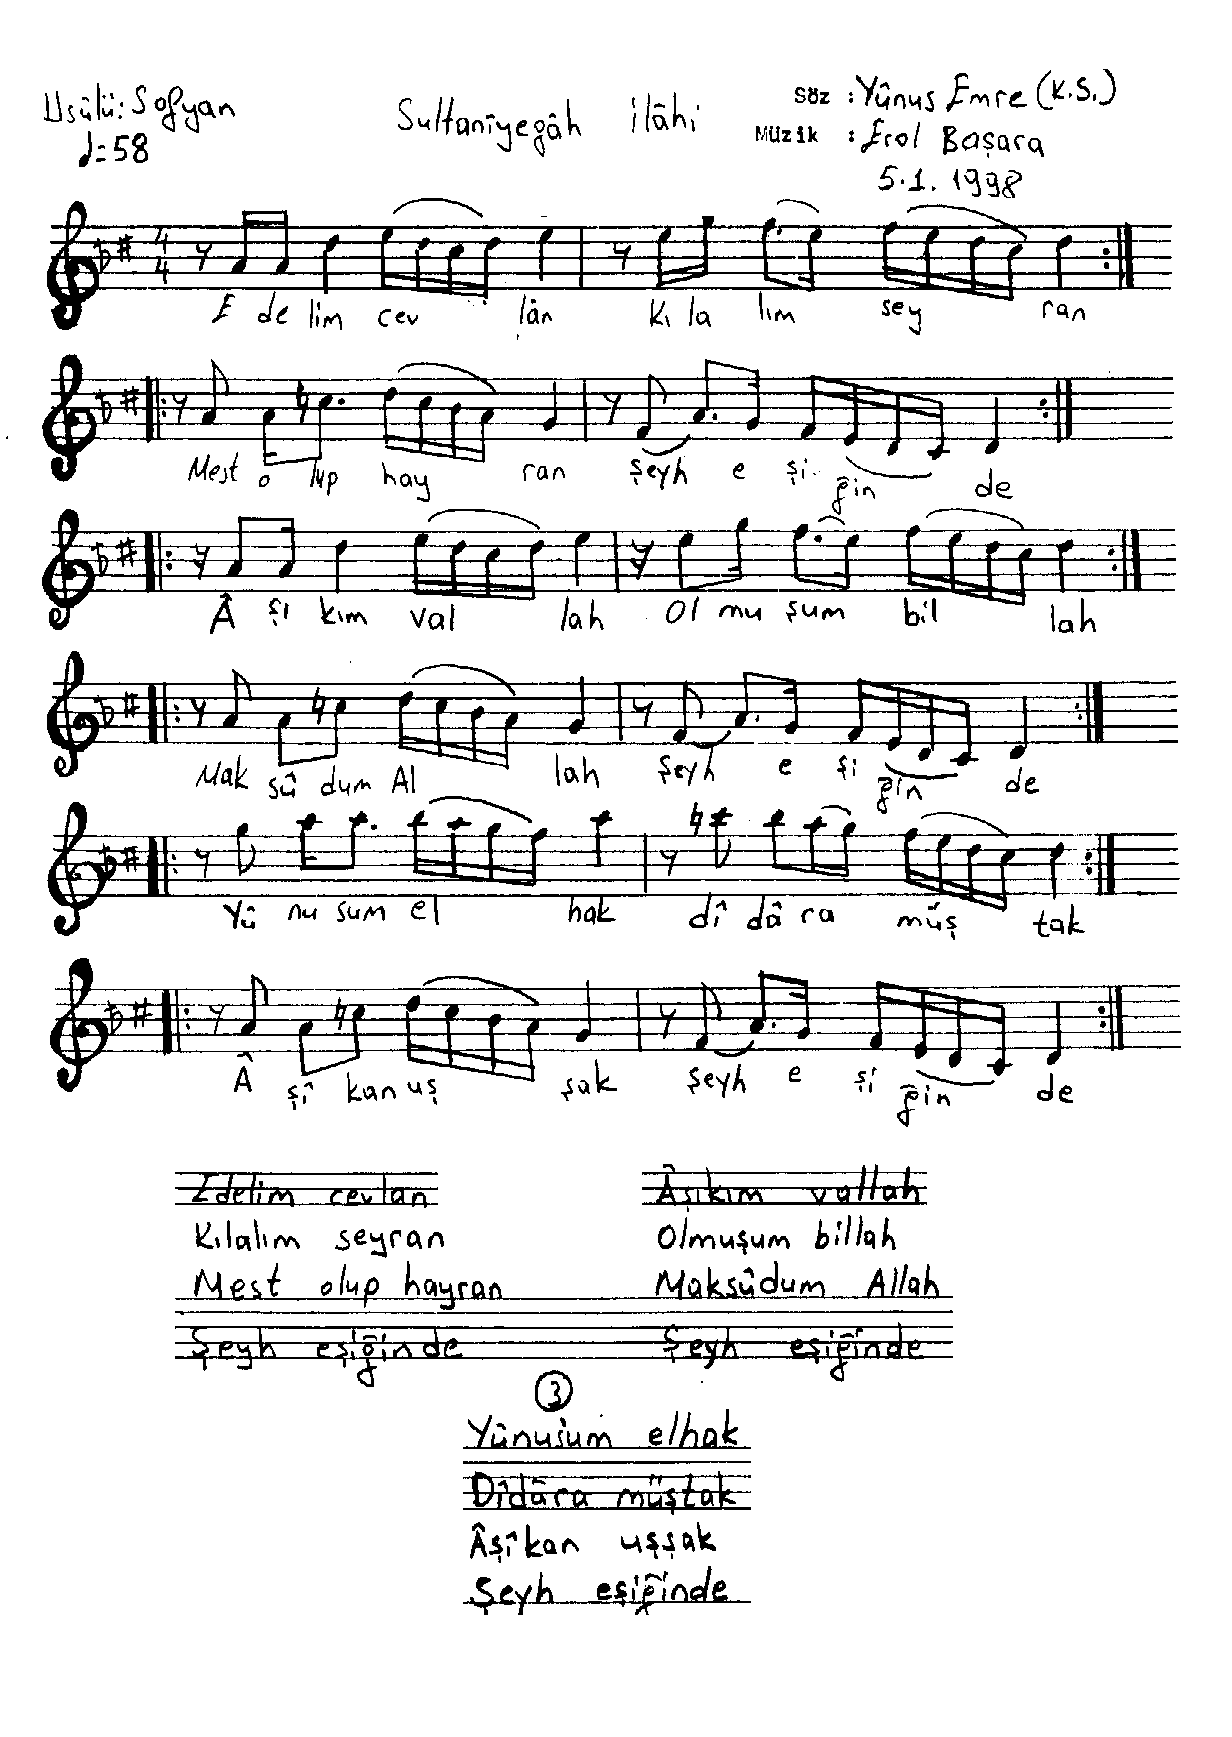 Usûlü: Sofyan
♩=58
Sultanîyegâh ilâhi
Söz : Yûnus Emre (K.S.)
Müzik : Erol Başara
5.1.1998
4
4
E de lim cev lân Kı la lım sey ran
Mest o lup hay ran şeyh e şi ğin de
 şı kım val lah Ol mu şum bil lah
Mak sû dum Al lah şeyh e şi ğin de
Yû nu sum el hak dî dâ ra müş tak
 şî kan uş şak şeyh e şi ğin de
Edelim cevlan
Kılalım seyran
Mest olup hayran
Şeyh eşiğinde
Âşıkım vallah
Olmuşum billah
Maksûdum Allah
Şeyh eşiğinde
3
Yûnusum elhak
Dîdâra müştak
Âşîkan uşşak
Şeyh eşiğinde